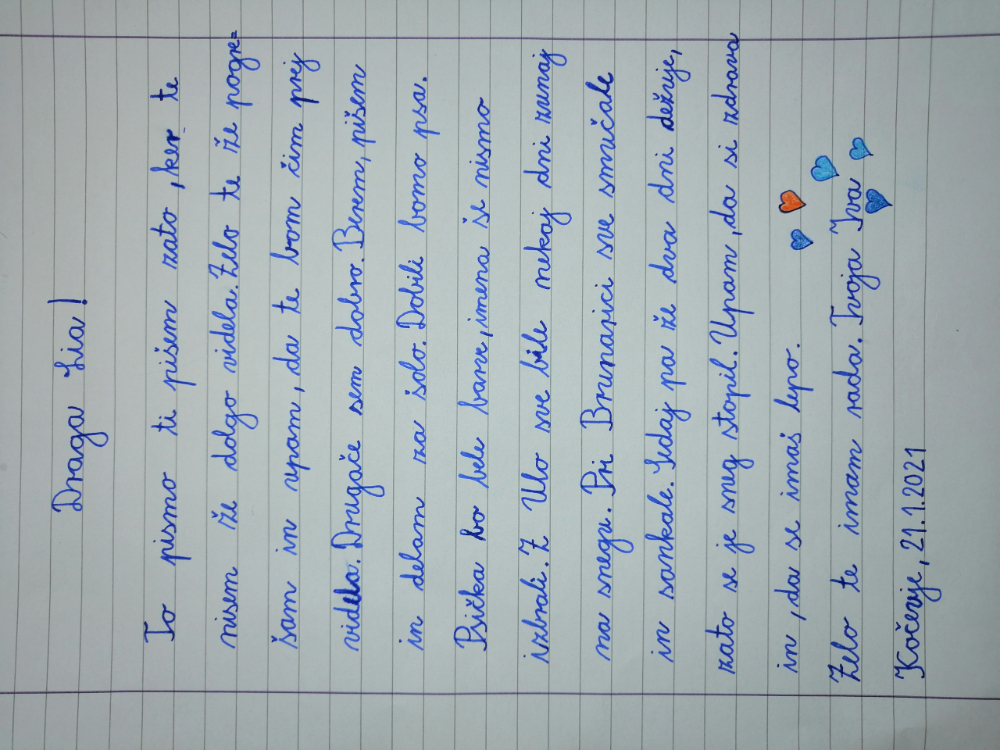 Draga Lia!
To pismo ti pišem zato, ker te
nisem že dolgo videla. Zelo te že pogre=
šam in upam, da te bom čim prej
videla. Drugače sem dobro. Berem, pišem
in delam za šolo. Dobili bomo psa.
Psička bo bele barve, imena še nismo
izbrali. Z Ulo sve bile nekaj dni zunaj
na snegu. Pri Brunarici sve smučale
in sankale. Sedaj pa že dva dni dežuje,
zato se je sneg stopil. Upam, da si zdrava
in, da se imaš lepo.
Zelo te imam rada. Tvoja Iva
Kočevje, 21.1.2021